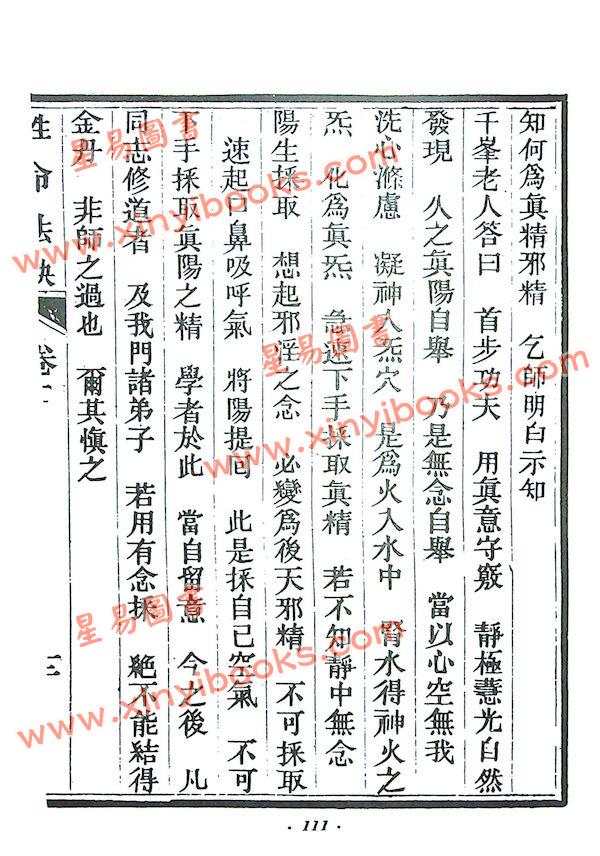 知何爲眞精邪精　乞師明白示知
千峯老人答曰　首步功夫　用眞意守竅　靜極慧光自然
發現　人之眞陽自舉　乃是無念自舉　當以心空無我
洗心滌慮　凝神入炁穴　是爲火入水中　腎水得神火之
炁　化爲眞炁　急速下手採取眞精　若不知靜中無念
陽生採取　想起邪淫之念　必變爲後天邪精　不可採取
速起口鼻吸呼氣　將陽提回　此是採自己空氣　不可
下手採取眞陽之精　學者於此　當自留意　今之後　凡
同志修道者　及我門諸弟子　若用有念採　絕不能結得
金丹　非師之過也　爾其愼之
性命法訣　卷
星易圖書
www.xinyibooks.com
星易圖書
www.xinyibooks.com
星易圖書
www.xinyibooks.com
· 111 ·